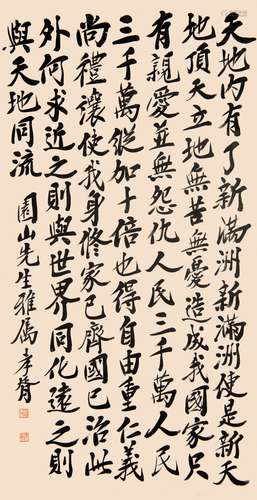 天地內有了新滿洲新滿洲使是新天
地頂天立地無苦無憂造成我國家只
有親愛並無怨仇人民三千萬人民
三千萬縱加十倍也得自由重仁義
尚禮讓使我身修家已齊國已治此
外何求近之則與世界同化遠之則
與天地同流
園山先生雅屬 孝胥